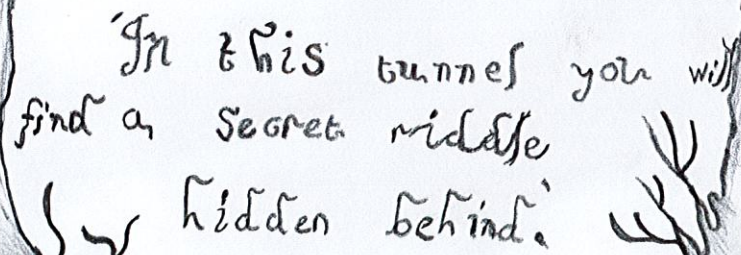 'In this tunnel you will
find a secret riddle
hidden behind.'